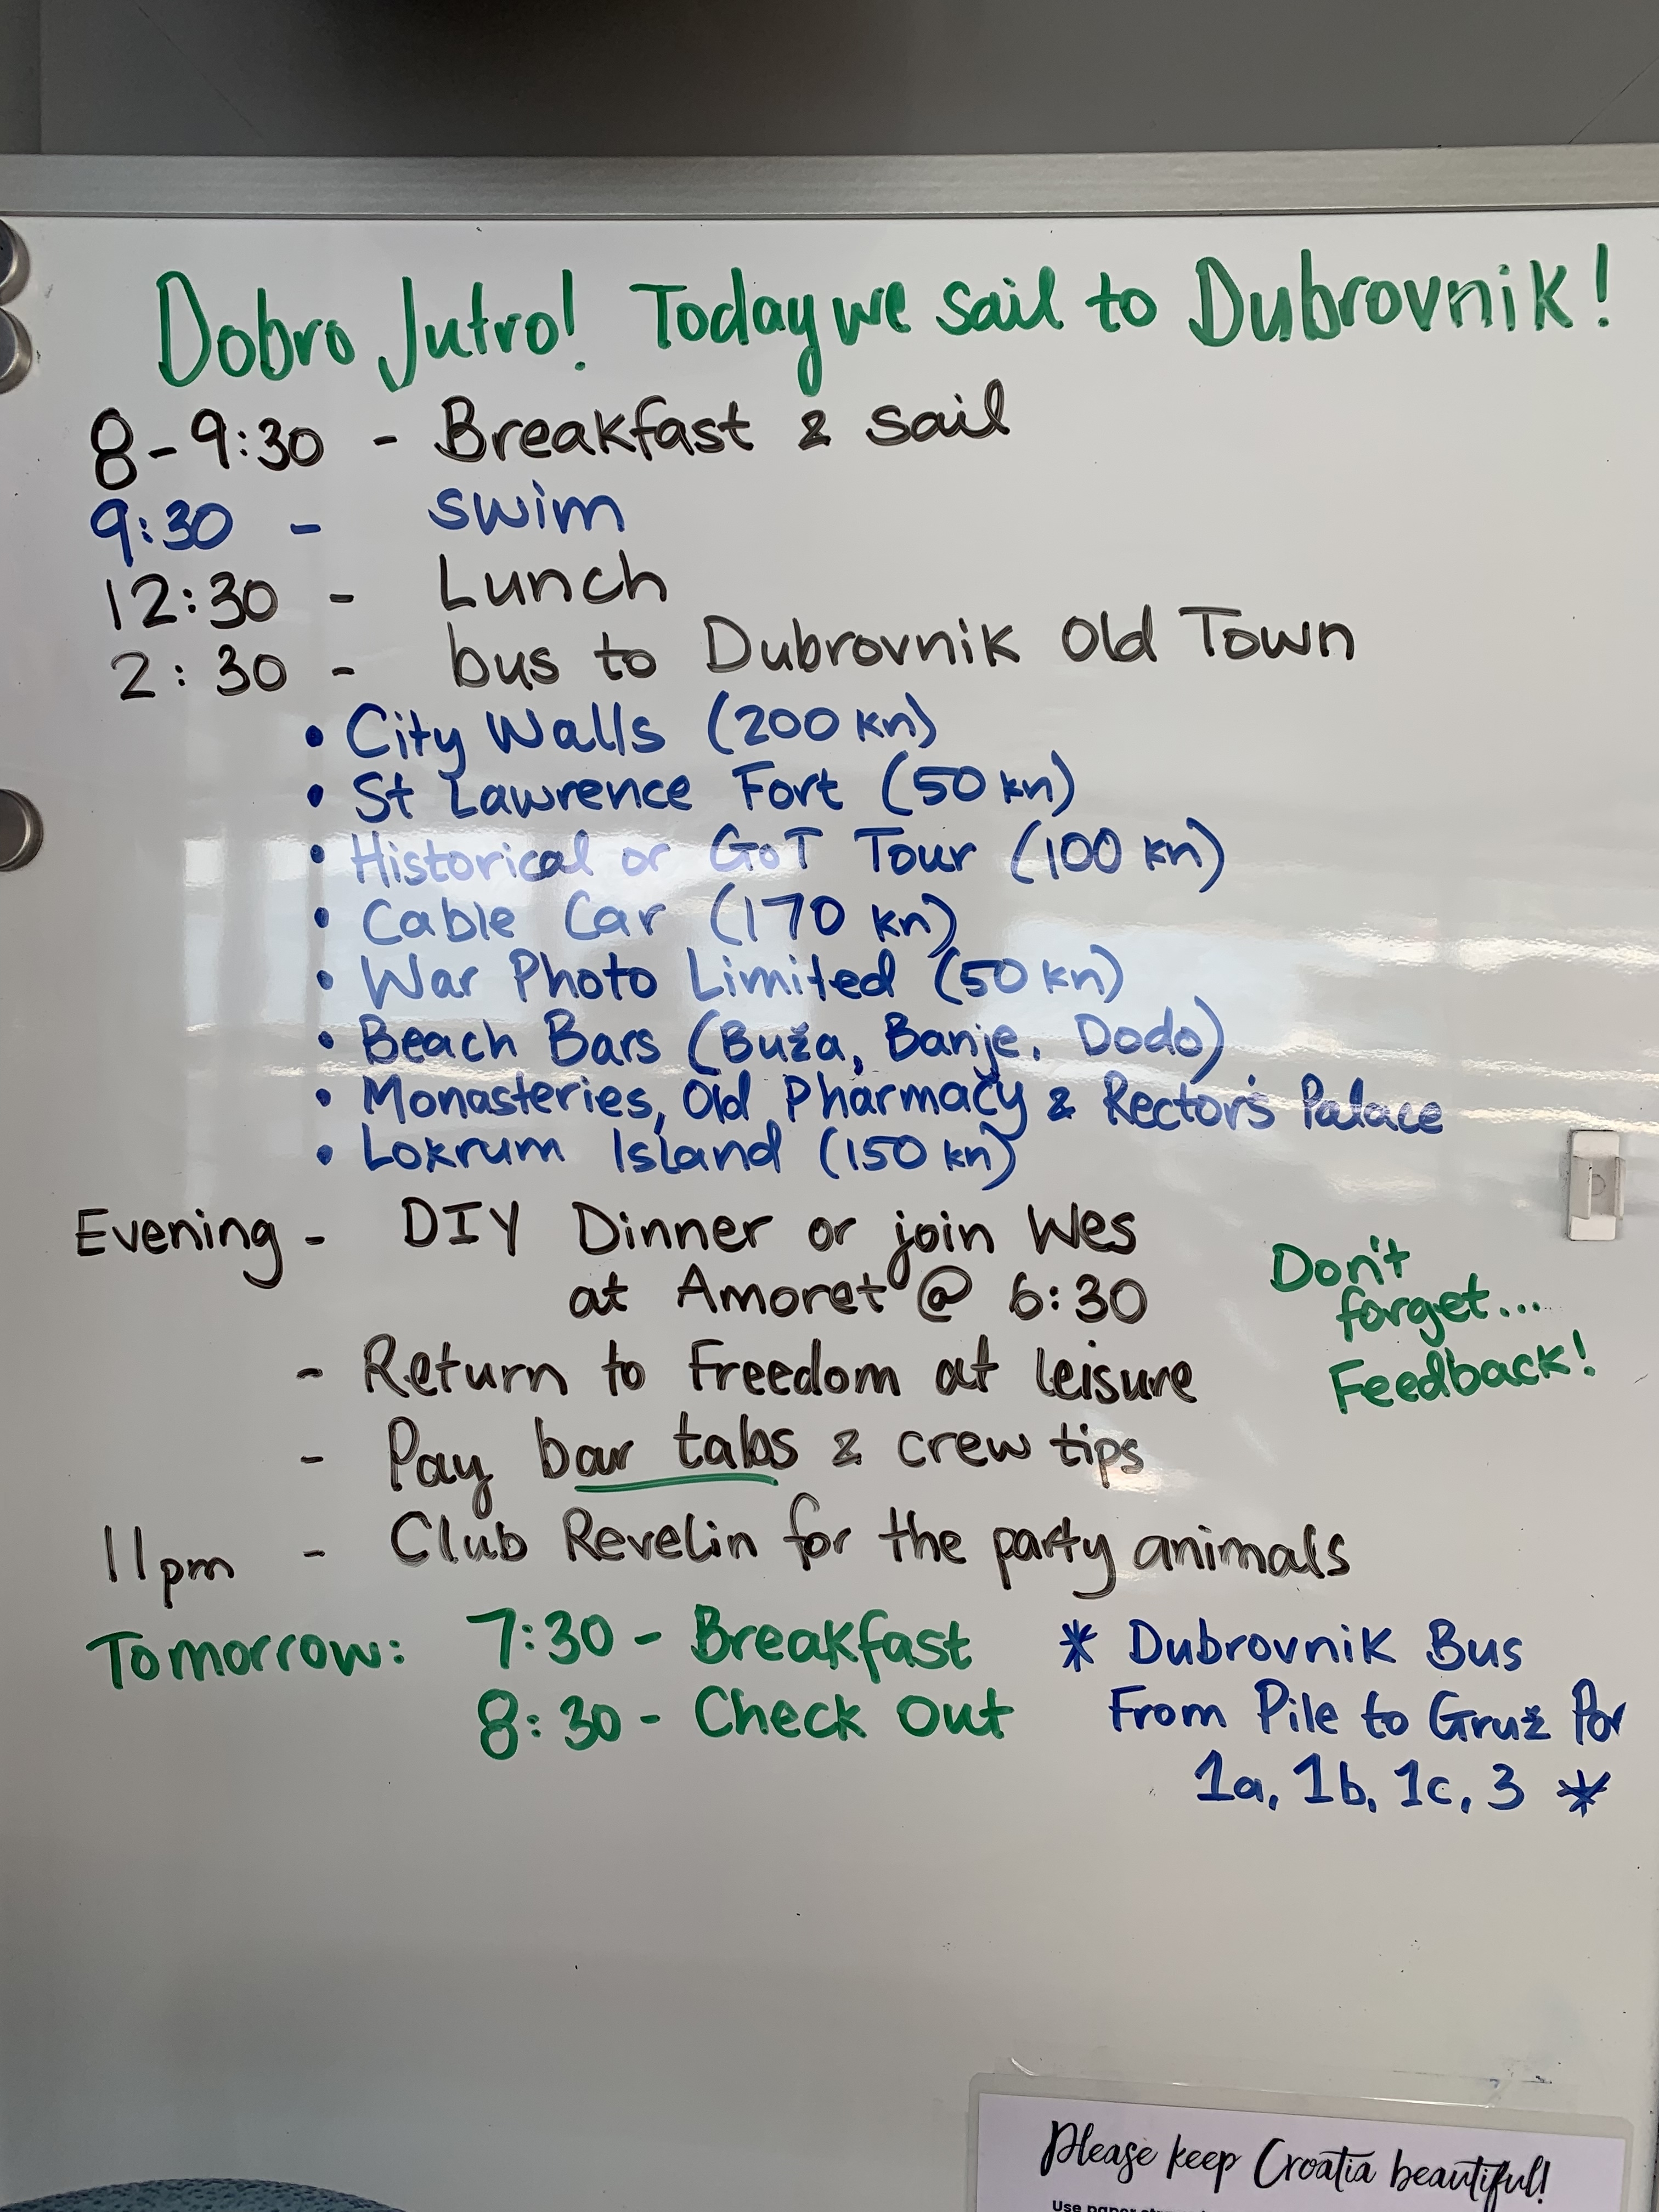 Dobro Jutro! Today we sail to Dubrovnik!
8-9:30 - Breakfast & sail
9:30 - swim
12:30 - Lunch
2:30 - bus to Dubrovnik Old Town
• City Walls (200 kn)
• St Lawrence Fort (50 kn)
• Historical or GoT Tour (100 kn)
• Cable Car (170 kn)
• War Photo Limited (50 kn)
• Beach Bars (Buža, Banje, Dodo)
• Monasteries, Old Pharmacy & Rector's Palace
• Lokrum Island (150 kn)
Evening - DIY Dinner or join Wes
at Amoret @ 6:30
- Return to Freedom at leisure
- Pay bar tabs & crew tips
Don't
forget...
Feedback!
11pm - Club Revelin for the party animals
Tomorrow: 7:30 - Breakfast
8:30 - Check Out
* Dubrovnik Bus
From Pile to Gruž Por
1a, 1b, 1c, 3 *
Please keep Croatia beautiful!
Use paper